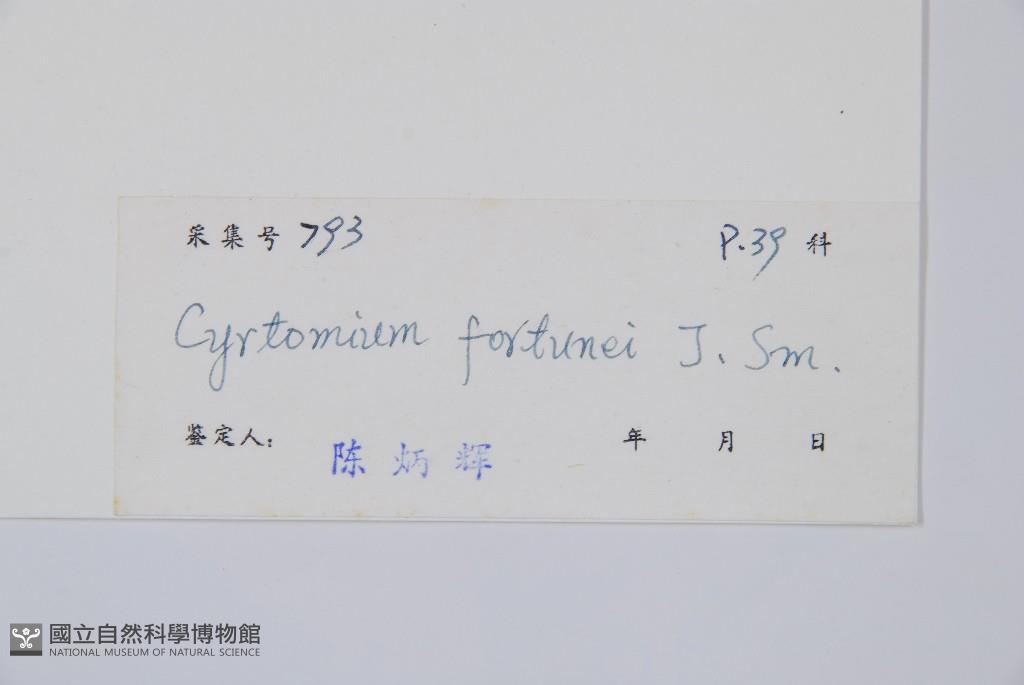 采集号 793 P.39 科
Cyrtomium fortunei J. Sm.
鉴定人: 陈炳辉 年 月 日
國立自然科學博物館
NATIONAL MUSEUM OF NATURAL SCIENCE